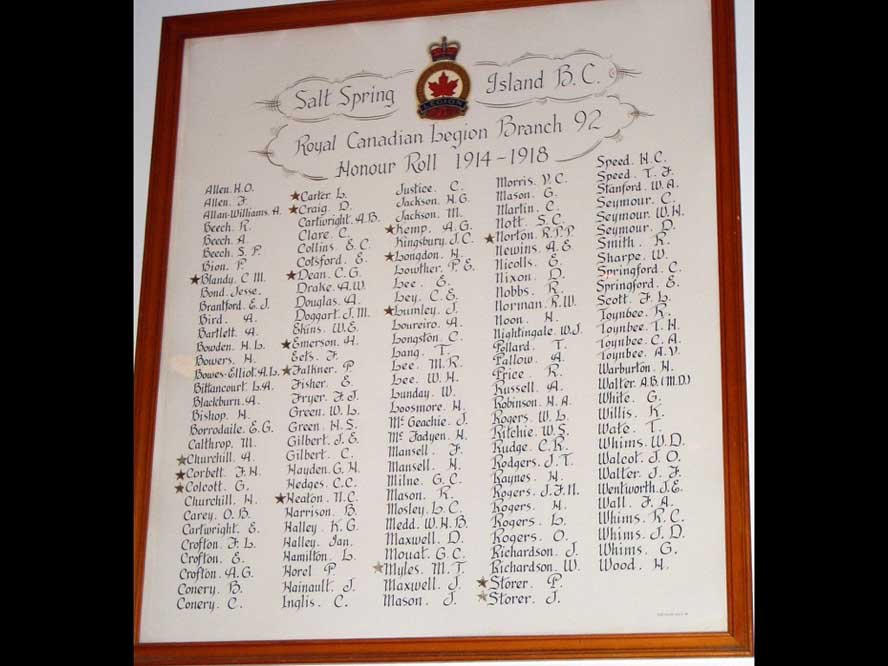 Salt Spring Island B.C.
LEGION
Royal Canadian Legion Branch 92
Honour Roll 1914-1918
Allen. H.O.
Allen. F.
Allan-Williams. A.
Beech. R.
Beech. A.
Beech. S. P.
Bion. P.
★Blandy. C M.
Bond. Jesse.
Brantford. E. J.
Bird. A.
Bartlett. A.
Bowden. H. L.
Bowers. H.
Bowes-Elliot. A. L.
Bittancourt. L.A.
Blackburn. A.
Bishop. H.
Borrodaile. E. G.
Calthrop. M.
★Churchill. A.
★Corbett. F. H.
★Colcott. G.
Churchill. H.
Carey. O. B.
Cartwright. E.
Crofton. F. L.
Crofton. E.
Crofton. A.G.
Conery. B.
Conery. C.
★Carter. L.
★Craig. D.
Cartwright. A.B.
Clare. C.
Collins. E. C.
Cotsford. E.
★Dean. C. G.
Drake. A.W.
Douglas. A.
Doggart. J. M.
Ekins. W.E.
★Emerson. H.
Eets. F.
★Falkner. P.
Fisher. E.
Fryer. F. J.
Green. W. L.
Green. H. S.
Gilbert. J. E.
Gilbert. C.
Hayden. G. H.
Hedges. C. C.
★Heaton. N. C.
Harrison. B.
Halley. K. G.
Halley. Ian.
Hamilton. L.
Horel P.
Hainault. J.
Inglis. C.
Justice. C.
Jackson. H. G.
Jackson. M.
★Kemp. A. G.
Kingsbury. J. C.
★Longdon. H.
Lowther. P. E.
Lee. E.
Ley. C. E.
★Lumley. J.
Loureiro. A.
Longston. C.
Lang. T.
Lee. M. R.
Lee. W. H.
Lunday. W.
Loosmore. H.
Mc Geachie. J.
Mc Fadyen. H.
Mansell. F.
Mansell. H.
Milne. G. C.
Mason. R.
Mosley. L. C.
Medd. W. H. B.
Maxwell. D.
Mouat. G. C.
★Myles. M. T.
Maxwell. J.
Mason. J.
Morris. V. C.
Mason. G.
Martin. C.
Nott. S. C.
★Norton. R. P. P.
Newins. A. E.
Nicolls. G.
Nixon. D.
Nobbs. R.
Norman. R. W.
Noon. H.
Nightingale. W. J.
Pollard. T.
Pallow. A.
Price. R.
Russell. A.
Robinson. H. A.
Rogers. W. L.
Ritchie. W. S.
Rudge. C. R.
Rodgers. J. T.
Raynes. H.
Rogers. J. F. N.
Rogers. H.
Rogers. L.
Rogers. O.
Richardson. J.
Richardson. W.
★Storer. P.
★Storer. J.
Speed. H. C.
Speed. T. F.
Stanford. W. A.
Seymour. C.
Seymour. W. H.
Seymour. D.
Smith. R.
Sharpe. W.
Springford. C.
Springford. E.
Scott. F. L.
Toynbee. R.
Toynbee. T. H.
Toynbee. C. A.
Toynbee. A. V.
Warburton. H.
Walter. A. B. (M.D.)
White. G.
Willis. K.
Wate. T.
Whims. W. D.
Walcot. J. O.
Walter. J. F.
Wentworth. J. E.
Wall. F. A.
Whims. R. C.
Whims. J. D.
Whims. G.
Wood. H.